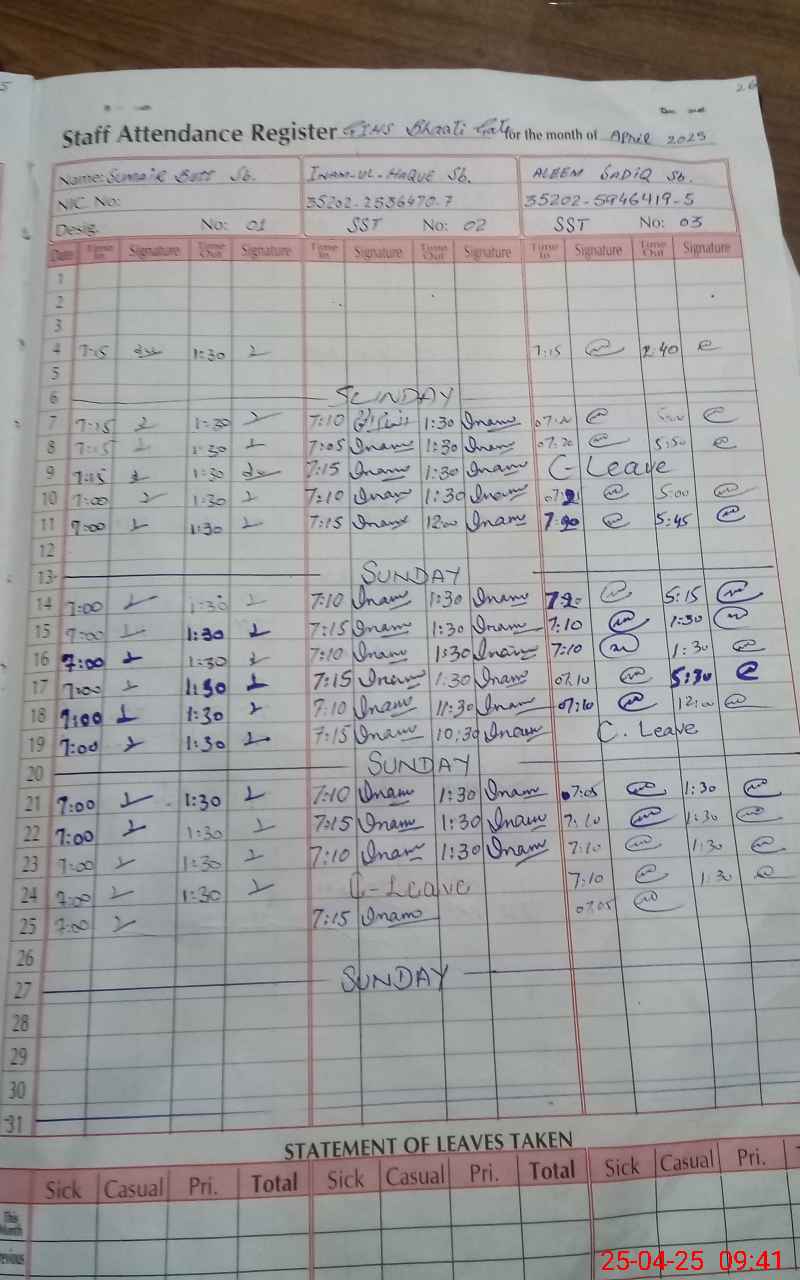 5
26
Staff Attendance Register GIHS Bhaati Gate for the month of April 2025
Name: Sumair Butt Sb. INAM-UL-HAQUE Sb. ALEEM SADIQ Sb.
NIC. No: 35202-2536470-7 35202-5946419-5
Desig. No: 01 SST No: 02 SST No: 03
Date Time In Signature Time Out Signature Time In Signature Time Out Signature Time In Signature Time Out Signature
1
2
3
4 7:15 1:30 7:15 2:40
5
6 SUNDAY
7 7:15 1:30 7:10 1:30 Inam
8 7:15 1:30 7:05 Inam 1:30 Inam 07:20 5:50
9 7:15 1:30 7:15 Inam 1:30 Inam C-Leave
10 7:00 1:30 7:10 Inam 1:30 Inam 5:00
11 7:00 1:30 7:15 Inam 12:00 Inam 7:20 5:45
12
13 SUNDAY
14 7:00 1:30 7:10 Inam 1:30 Inam 7:20 5:15
15 7:00 1:30 7:15 Inam 1:30 Inam 7:10 1:30
16 7:00 1:30 7:10 Inam 1:30 Inam 7:10 1:30
17 7:00 1:30 7:15 Inam 1:30 Inam 07:10 5:30
18 7:00 1:30 7:10 Inam 11:30 Inam 07:10 12:00
19 7:00 1:30 7:15 Inam 10:30 Inam C. Leave
20 SUNDAY
21 7:00 1:30 7:10 Inam 1:30 Inam 7:05 1:30
22 7:00 1:30 7:15 Inam 1:30 Inam 7:10 1:30
23 7:00 1:30 7:10 Inam 1:30 Inam 7:10 1:30
24 7:00 1:30 C-Leave 7:10 1:30
25 7:00 7:15 Inam 07:05
26
27 SUNDAY
28
29
30
31
STATEMENT OF LEAVES TAKEN
Sick Casual Pri. Total Sick Casual Pri. Total Sick Casual Pri.
This Month
25-04-25 09:41